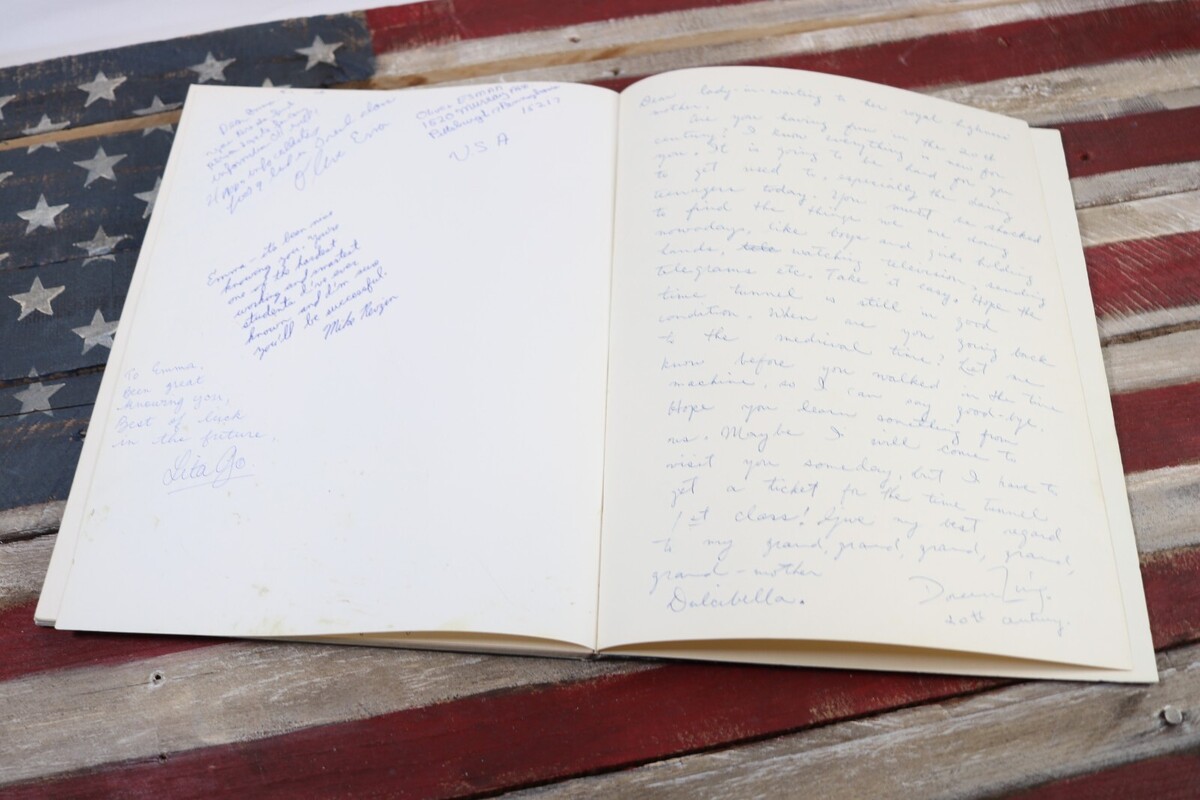 Dear Emma
Olive Esman
1620 Murray Ave
Pittsburgh Pennsylvania
15217
U.S.A
Emma – its been nice
knowing you. You're
one of the hardest
working and smartest
students I've ever
known and I'm sure
you'll be successful.
Mike
To Emma,
Been great
knowing you,
Best of luck
in the future,
Lita Go.
Dear lady-in-waiting to her royal highness
mother,
Are you having fun in the 20th
century? I know everything is new for
you. It is going to be hard for you
to get used to, especially the dating
teenagers today. You must be shocked
to find the things we are doing
nowadays, like boys and girls holding
hands, watching television, sending
telegrams etc. Take it easy. Hope the
time tunnel is still in good
condition. When are you going back
to the medieval time? Let me
know before you walked in the time
machine, so I can say good-bye.
Hope you learn something from
us. Maybe I will come to
visit you someday, but I have to
get a ticket for the time tunnel
1st class! Give my best regard
to my grand, grand, grand, grand,
grand-mother
Dulcibella.
20th century.